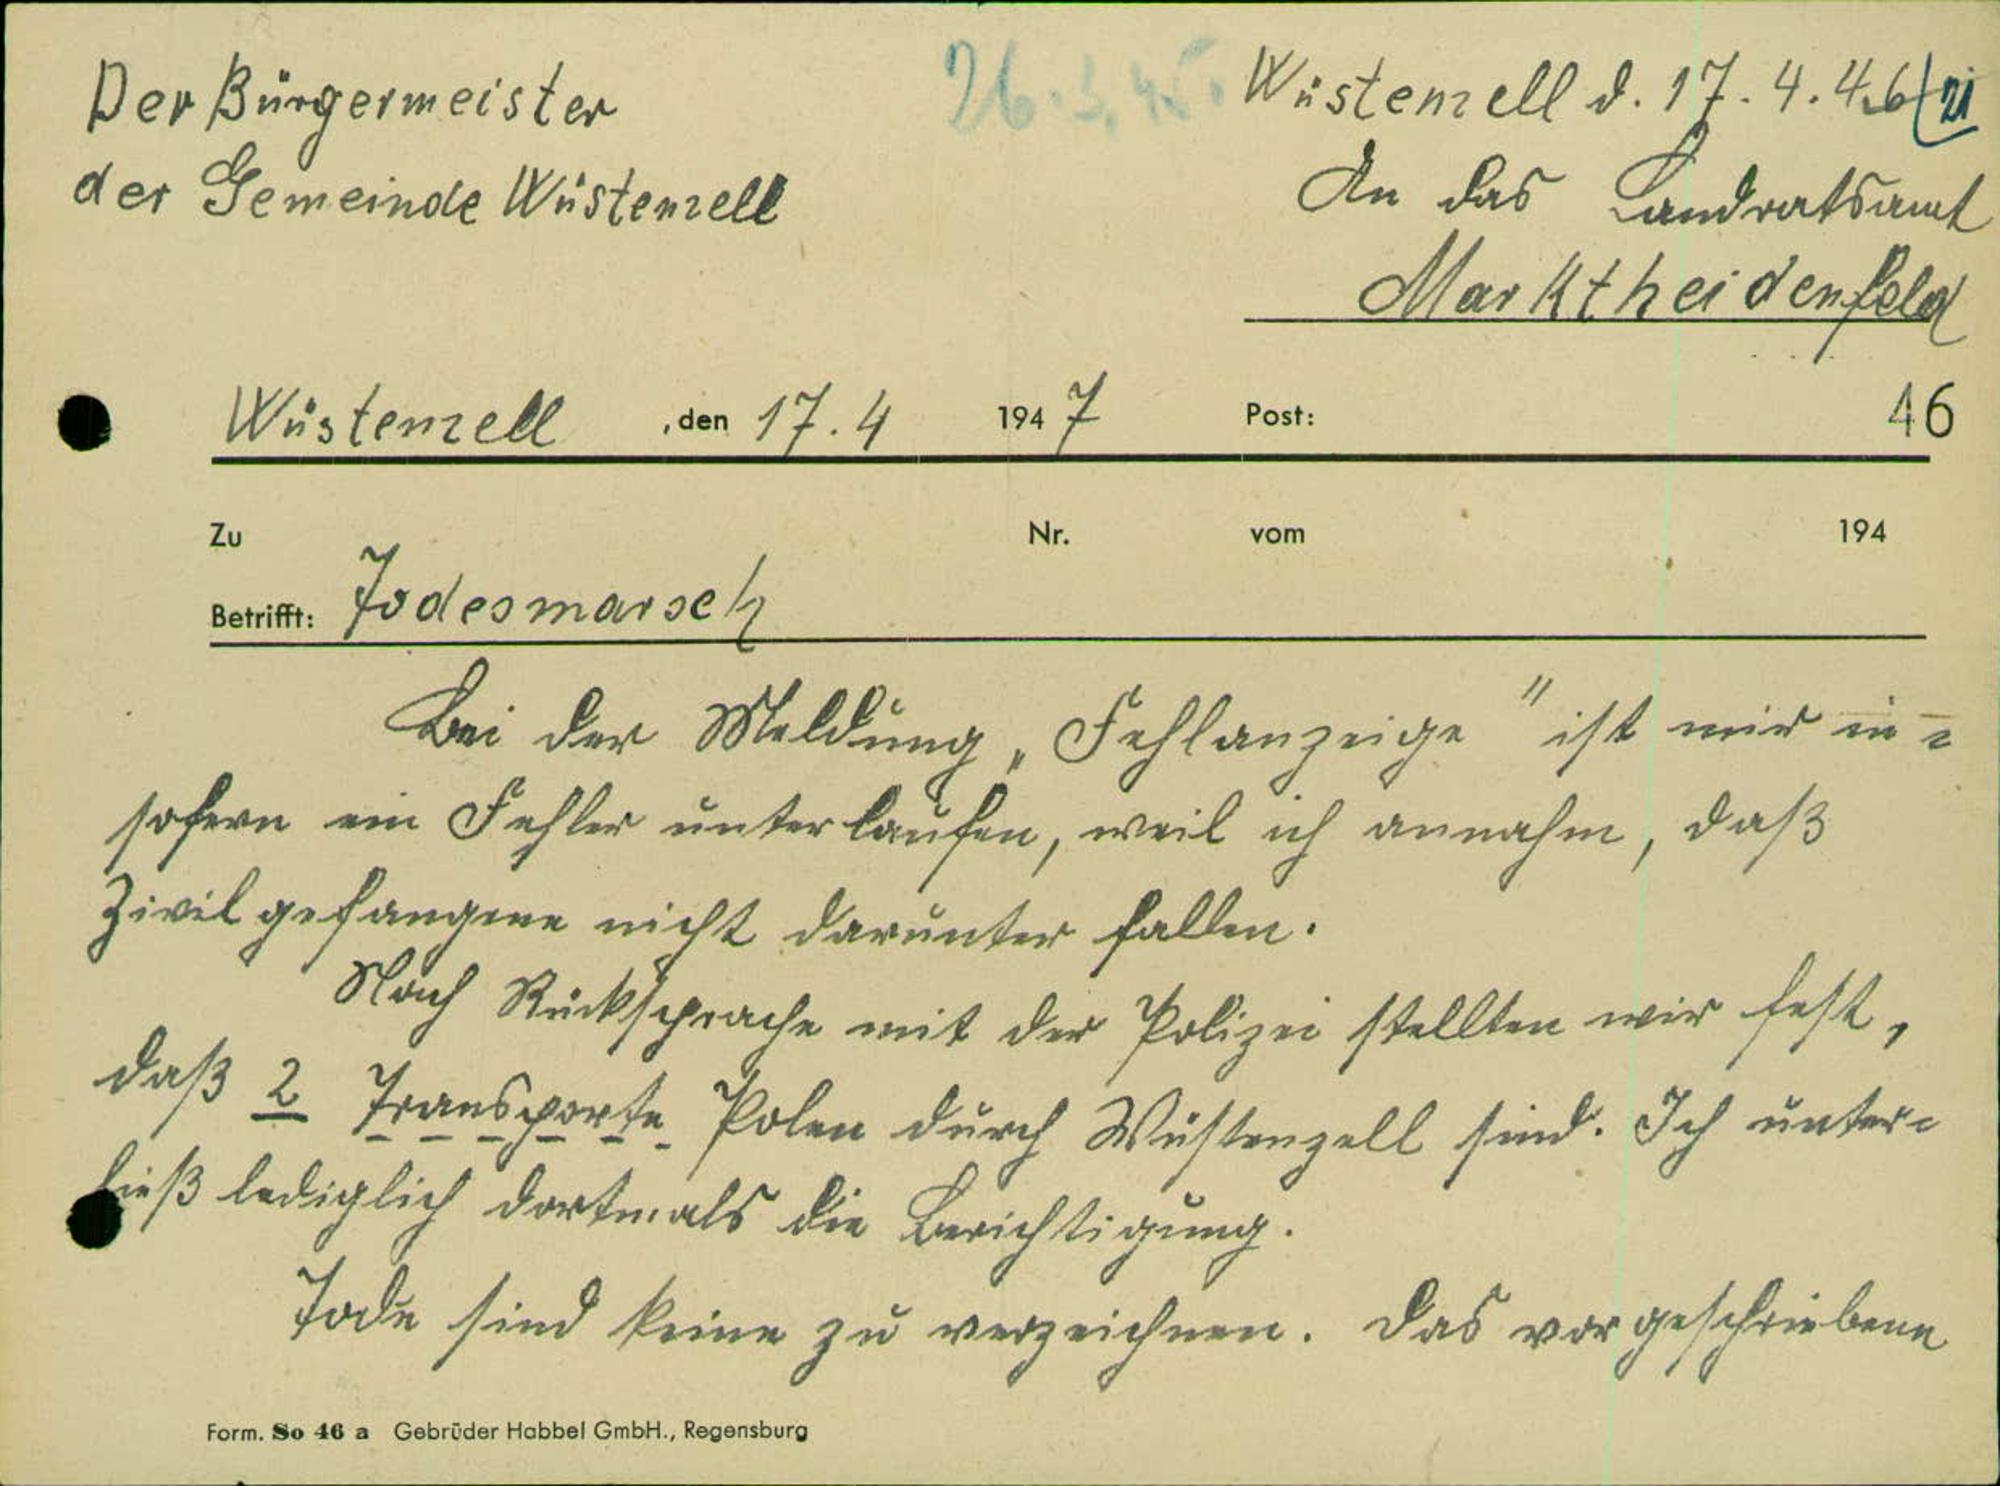 Der Bürgermeister
der Gemeinde Wüstenzell
26.3.45.
Wüstenzell d. 17.4.46
An das Landratsamt
Marktheidenfeld
Wüstenzell, den 17.4 1947 Post: 46
Zu Nr. vom 194
Betrifft: Todesmarsch
Bei der Meldung „Fehlanzeige" ist mir in=
sofern ein Fehler unterlaufen, weil ich annahm, daß
Zivilgefangene nicht darunter fallen.
Nach Rücksprache mit der Polizei stellten wir fest,
daß 2 Transporte Polen durch Wüstenzell sind. Ich unter=
ließ lediglich dortmals die Berichtigung.
Tode sind keine zu verzeichnen. Das vorgeschriebene
Form. So 46 a Gebrüder Habbel GmbH., Regensburg